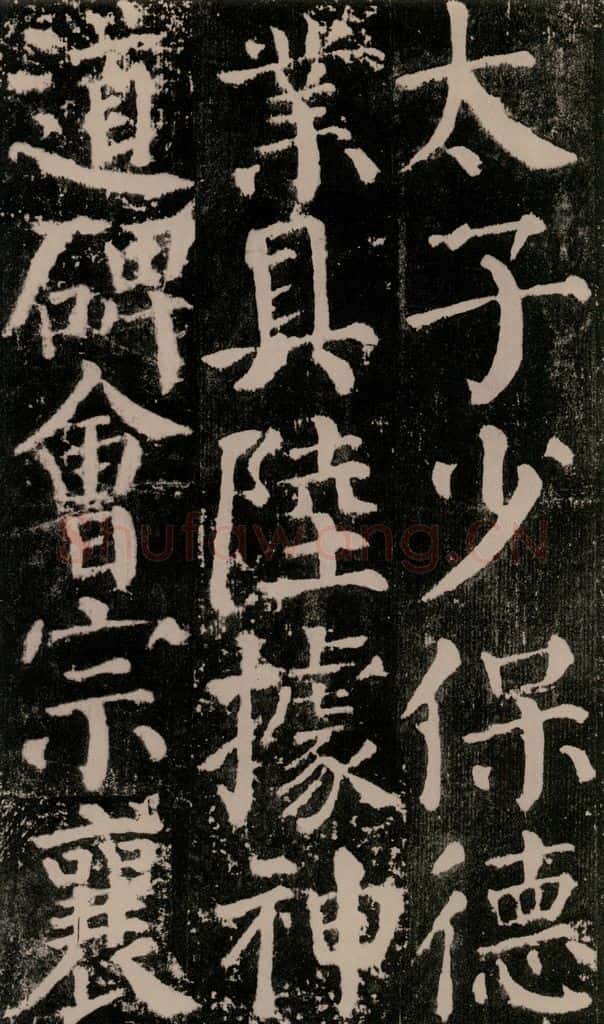 太子少保德
業具陸據神
道碑會宗襄
Shufawang.CN